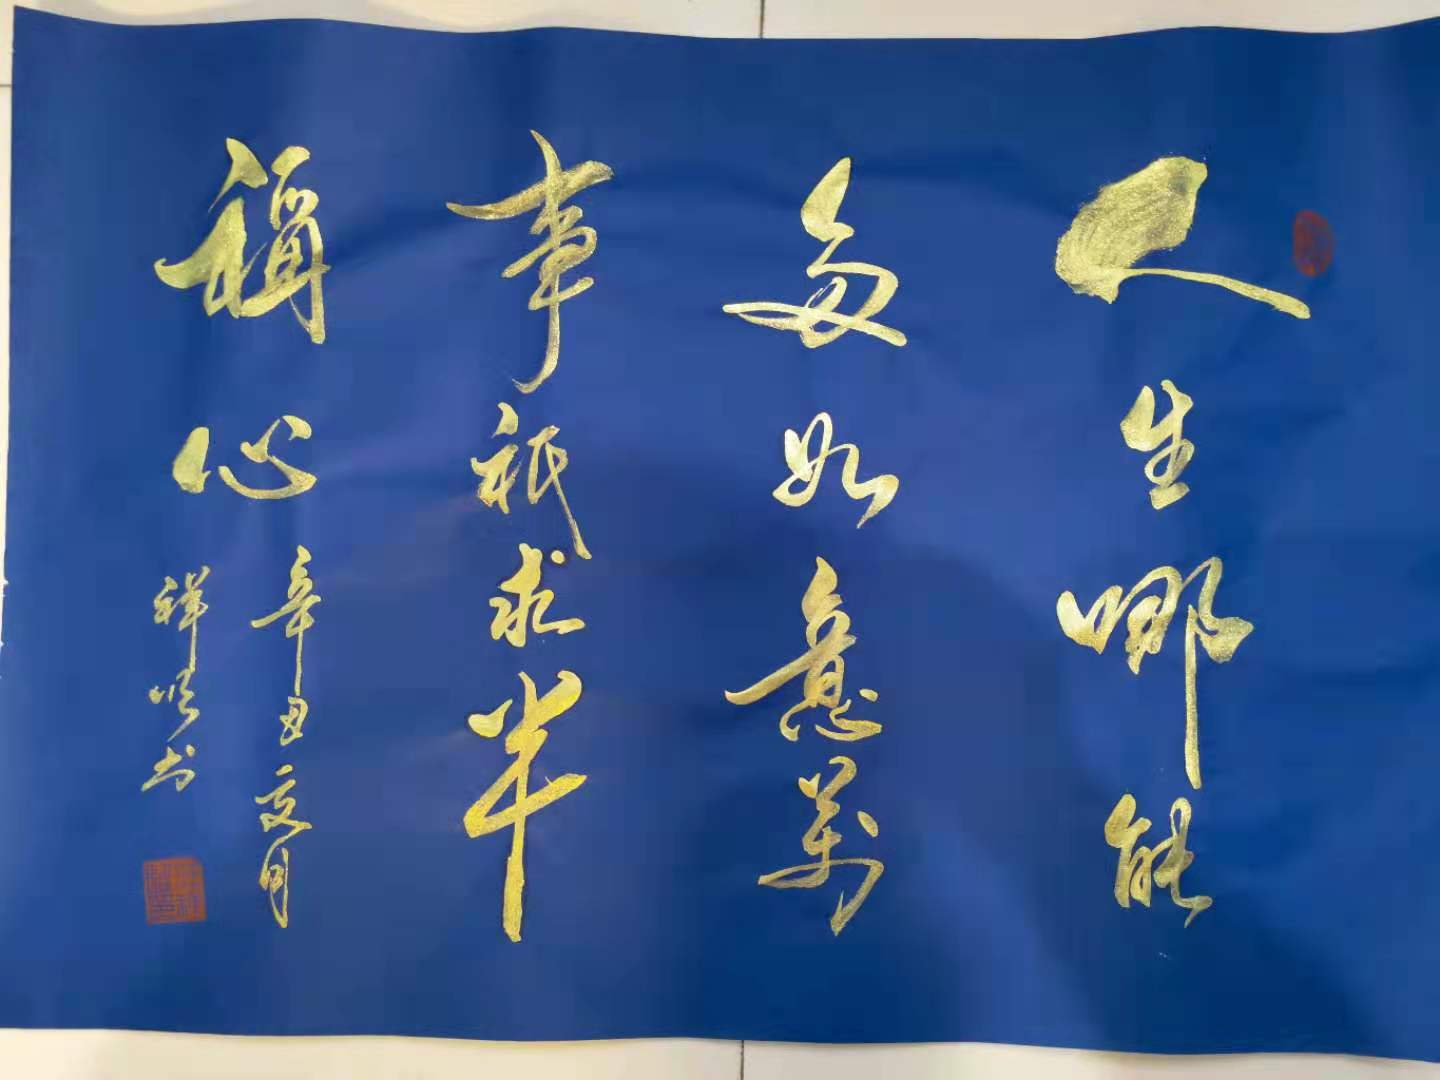 人生哪能
多如意萬
事祇求半
稱心
辛丑文月
祥順书